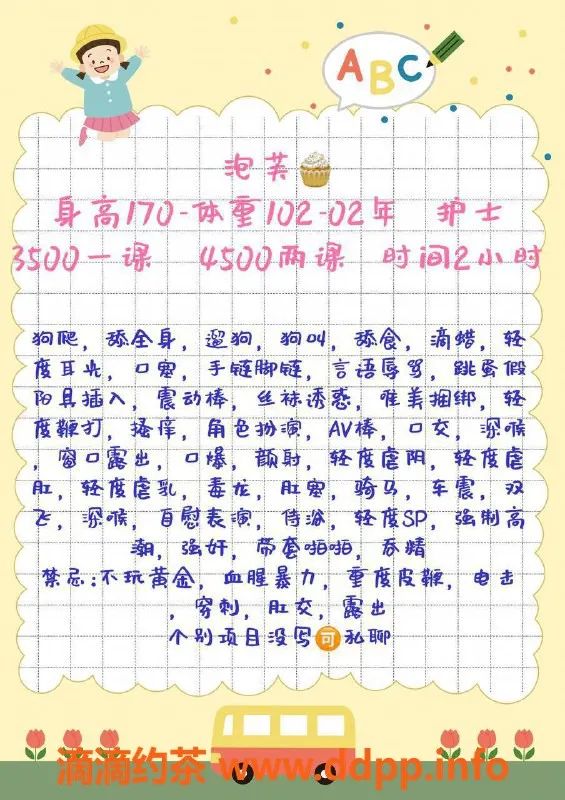 ABC
泡芙
身高170-体重102-02年 护士
3500一课 4500两课 时间2小时
狗爬,舔全身,遛狗,狗叫,舔食,滴蜡,轻
度耳光,口塞,手链脚链,言语辱骂,跳蛋假
阳具插入,震动棒,丝袜诱惑,唯美捆绑,轻
度鞭打,搔痒,角色扮演,AV棒,口交,深喉
,窗口露出,口爆,颜射,轻度虐阴,轻度虐
肛,轻度虐乳,毒龙,肛塞,骑马,车震,双
飞,深喉,自慰表演,侍浴,轻度SP,强制高
潮,强奸,带套啪啪,吞精
禁忌:不玩黄金,血腥暴力,重度皮鞭,电击
,穿刺,肛交,露出
个别项目没写可私聊
滴滴约茶 www.ddpp.info